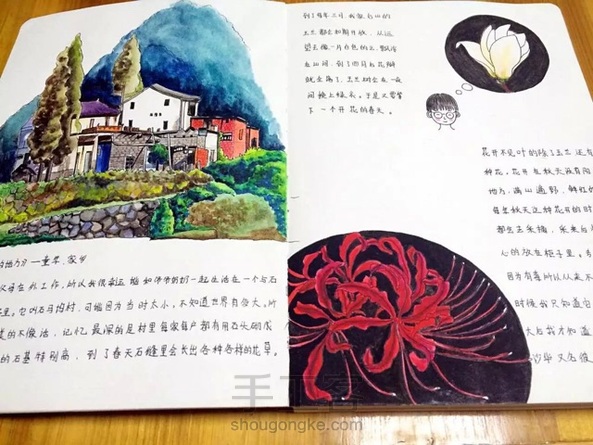 到了每年三月，我家后山的
玉兰都会如期开放，从远
望去像一片白色的云，飘浮
在山间，到了四月白花瓣
就会落了，玉兰树会在一夜
间换上绿衣。于是又需等
下一个开花的春天。
花开不见叶的除了玉兰还有
种花，花开在秋天没有阳
地方，满山遍野，鲜红的
每至秋天这种花开的时
都会去采摘，采来后
心的放在柜子里。
因为有毒所以从来不
时候我只知道它
大后我才知道
沙华又名彼
的地方》一童年．家乡
父母在外工作，所以我很幸运能和爷爷奶奶一起生活在一个与石
里，它叫石垌村，可能因为当时太小，不知道世界有多大，所
的不像话，记忆最深的是村里每家每户都有用石头砌成
的石基特别高，到了春天石缝里会长出各种各样的花草。
手工客
shougongke.com